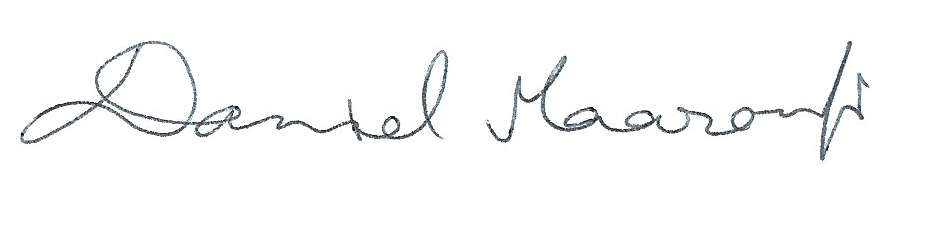 Daniel Maaroufi